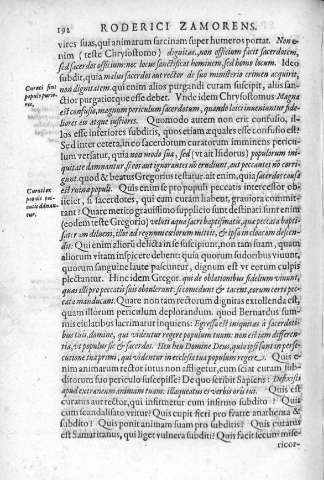 192 RODERICI ZAMORENS.
vires suas, qui animarum sarcinam super humeros portat. Non e-
nim (teste Chrysostomo) dignitas, non officium facit sacerdotem,
sed sacerdos officium: nec locus sanctificat hominem, sed homo locum. Ideo
subdit, quia malus sacerdos aut rector de suo ministerio crimen acquirit,
Curati sint populis puriores.
non dignitatem. qui enim alios purgandi curam suscipit, alius san-
ctior purgatiorque esse debet. Vnde idem Chrysostomus Magna
est confusio, magnum periculum sacerdotum, quando laici inveniuntur fide-
liores eo atque iustiores. Quomodo autem non erit confusio, il-
los esse inferiores subditis, quos etiam æquales esse confusio est?
Sed inter cetera, in eo sacerdotum curatorum imminens pericu-
lum versatur, quia non modo sua, sed (vt ait Isidorus) populorum ini-
quitate damnantur, si eos aut ignorantes nō erudiunt, aut peccantes nō corri-
gunt. quod & beatus Gregorius testatur. ait enim, quia sacerdotes causa
Curati ex populi peccatis damnantur.
est ruina populi. Quis enim se pro populi peccatis intercessor ob-
iiciet, si sacerdotes, qui eam curam habeat, graviora commit-
tant? Quare metito gravissimo supplicio sunt destinati: sunt enim
(eodem teste Gregorio) veluti aqua sacri baptismatis, quæ peccata bapti-
satorum diluens, illos ad regnum cælorum mittit, & ipsa in cloacam descen-
dit. Qui enim aliorū delicta in se suscipiunt, non tam suam, quam
aliorum vitam inspicere debent: quia quorum sudoribus vivunt,
quorum sanguine laute pascuntur, dignum est vt eorum culpis
plectantur. Hinc idem Gregor. qui de oblationibus fidelium vivunt,
quas illi pro peccatis suis obtulerunt: si comedunt & tacent, eorum certe pec-
cata manducant. Quare non tam rectorum dignitas extollenda est,
quam illorum periculum deplorandum. quod Bernardus sum-
mis eiulatibus lacrimatur inquiens: Egressa est iniquitas à sacerdoti-
bus tuis, domine, qui videntur regere populum tuum: non est iam differen-
tia, vt populus sic & sacerdos. Heu heu Domine Deus, quia ipsi sunt in perse-
cutione tua primi, qui videntur in ecclesia tua populum regere. Quis e-
nim animarum rector iotus non affligetur, cum sciat curam sub-
ditorum suo periculo suscepisse? De quo scribit Sapiens: Defixisti
apud extraneum animam tuam. illaqueatus es verbis oris tui. Quis est
curatus aut rector, qui infirmetur cum infirmo subdito? Quis
cum scandalisato vritur? Quis cupit fieri pro fratre anathema &
subdito? Quis ponit animam suam pro subditis? Quis curatus
est Samaritanus, qui liget vulnera subditi? Quis facit secum mise-
ricor-